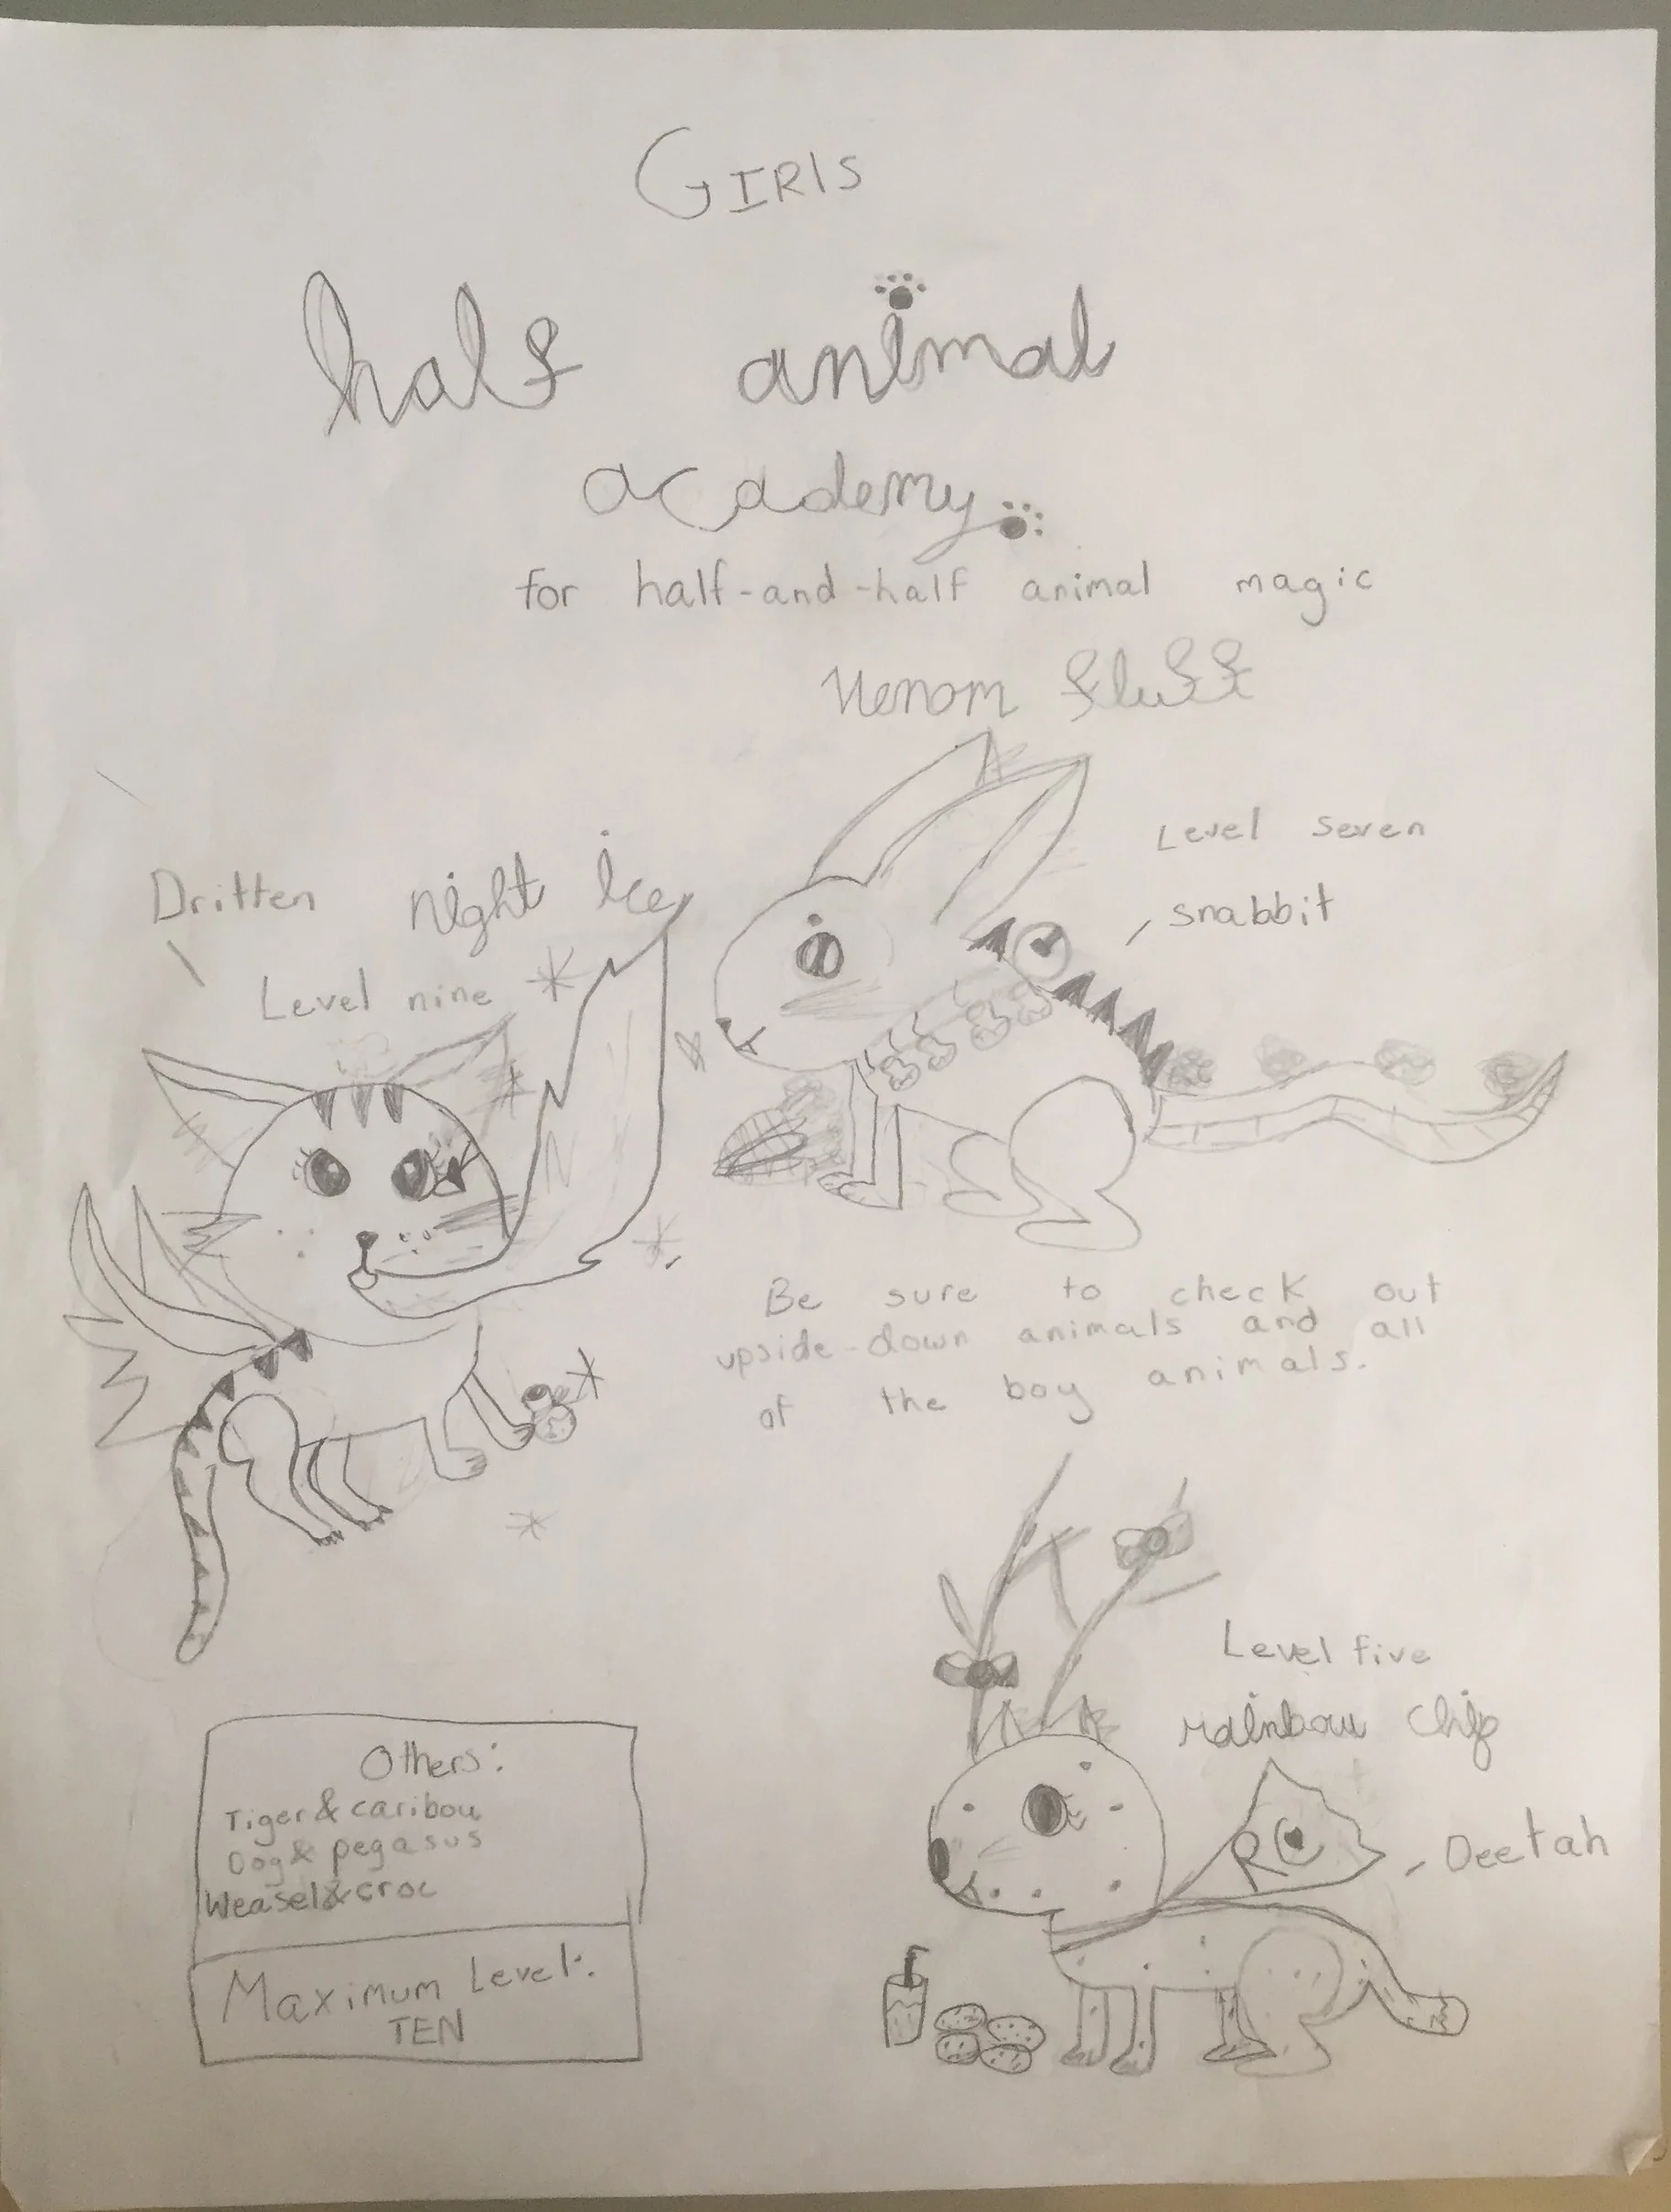 GIRls
half animal
academy
for half-and-half animal magic
Venom fluff
Level seven
snabbit
Dritten night ice
Level nine
Be sure to check out
upside-down animals and all
of the boy animals.
Level five
rainbow chip
RC
Deetah
Others:
Tiger & caribou
Dog & pegasus
Weasel & croc
Maximum Level:
TEN